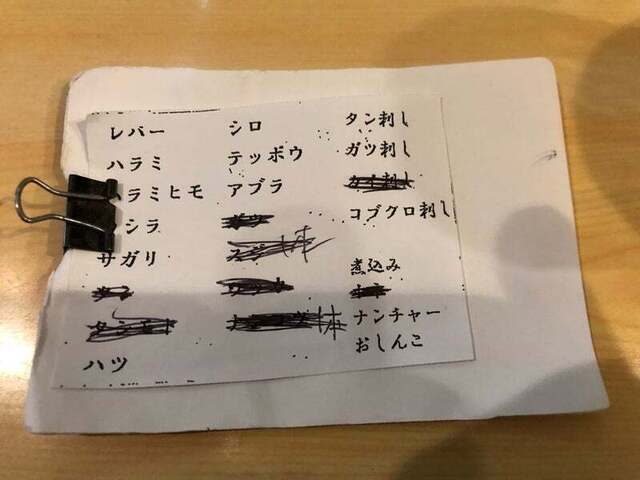 レバー
ハラミ
ラミヒモ
シラ
サガリ
ハツ
シロ
テッポウ
アブラ
タン刺し
ガツ刺し
コブクロ刺し
煮込み
ナンチャー
おしんこ